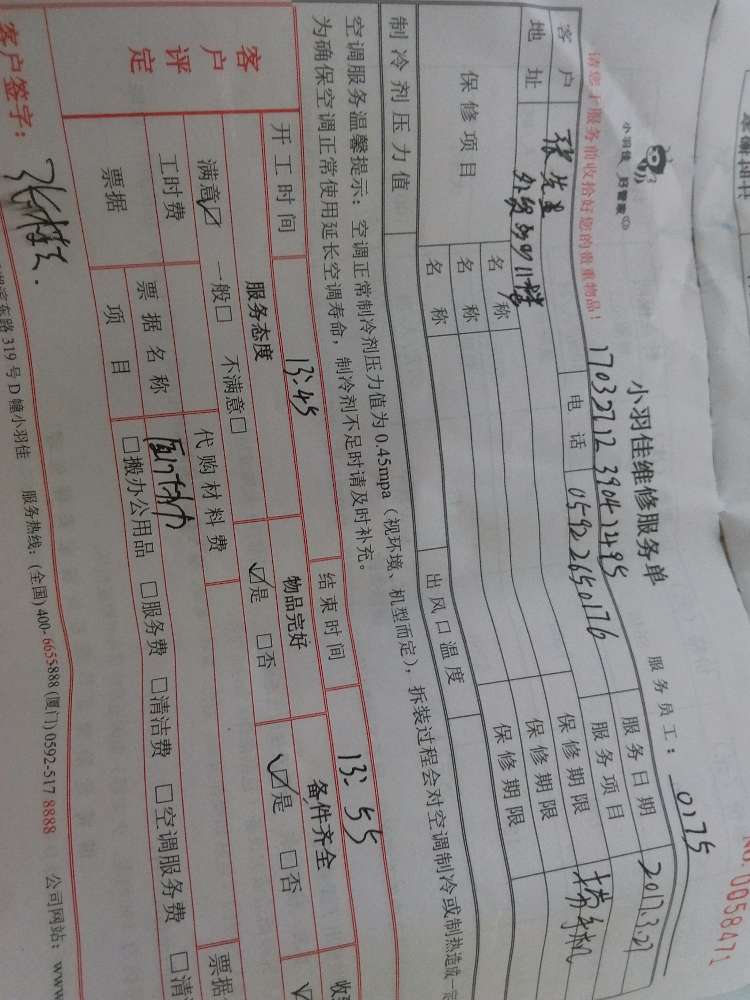 小羽佳 好管家
小羽佳维修服务单
No.0058471
请您于服务前收拾好您的贵重物品！
17032712 39041495
服务员工：0175
客户 张先生 电话 0592 2650176 服务日期 2017.3.27
地址 服务项目
保修项目 名称 保修期限
名称 保修期限
名称 保修期限
制冷剂压力值 出风口温度
空调服务温馨提示：空调正常制冷剂压力值为0.45mpa（视环境、机型而定），拆装过程会对空调制冷或制热造成一定
为确保空调正常使用延长空调寿命，制冷剂不足时请及时补充。
开工时间 13:45 结束时间 13:55
客户评定
服务态度 物品完好 备件齐全
满意☑ 一般□ 不满意□ ☑是 □否 ☑是 □否
工时费 代购材料费
票据 票据名称 票据
项目 □搬办公用品 □服务费 □清洁费 □空调服务费 □清
客户签字：
东路319号D幢小羽佳 服务热线：(全国)400-6655888 (厦门)0592-517 8888 公司网站：www